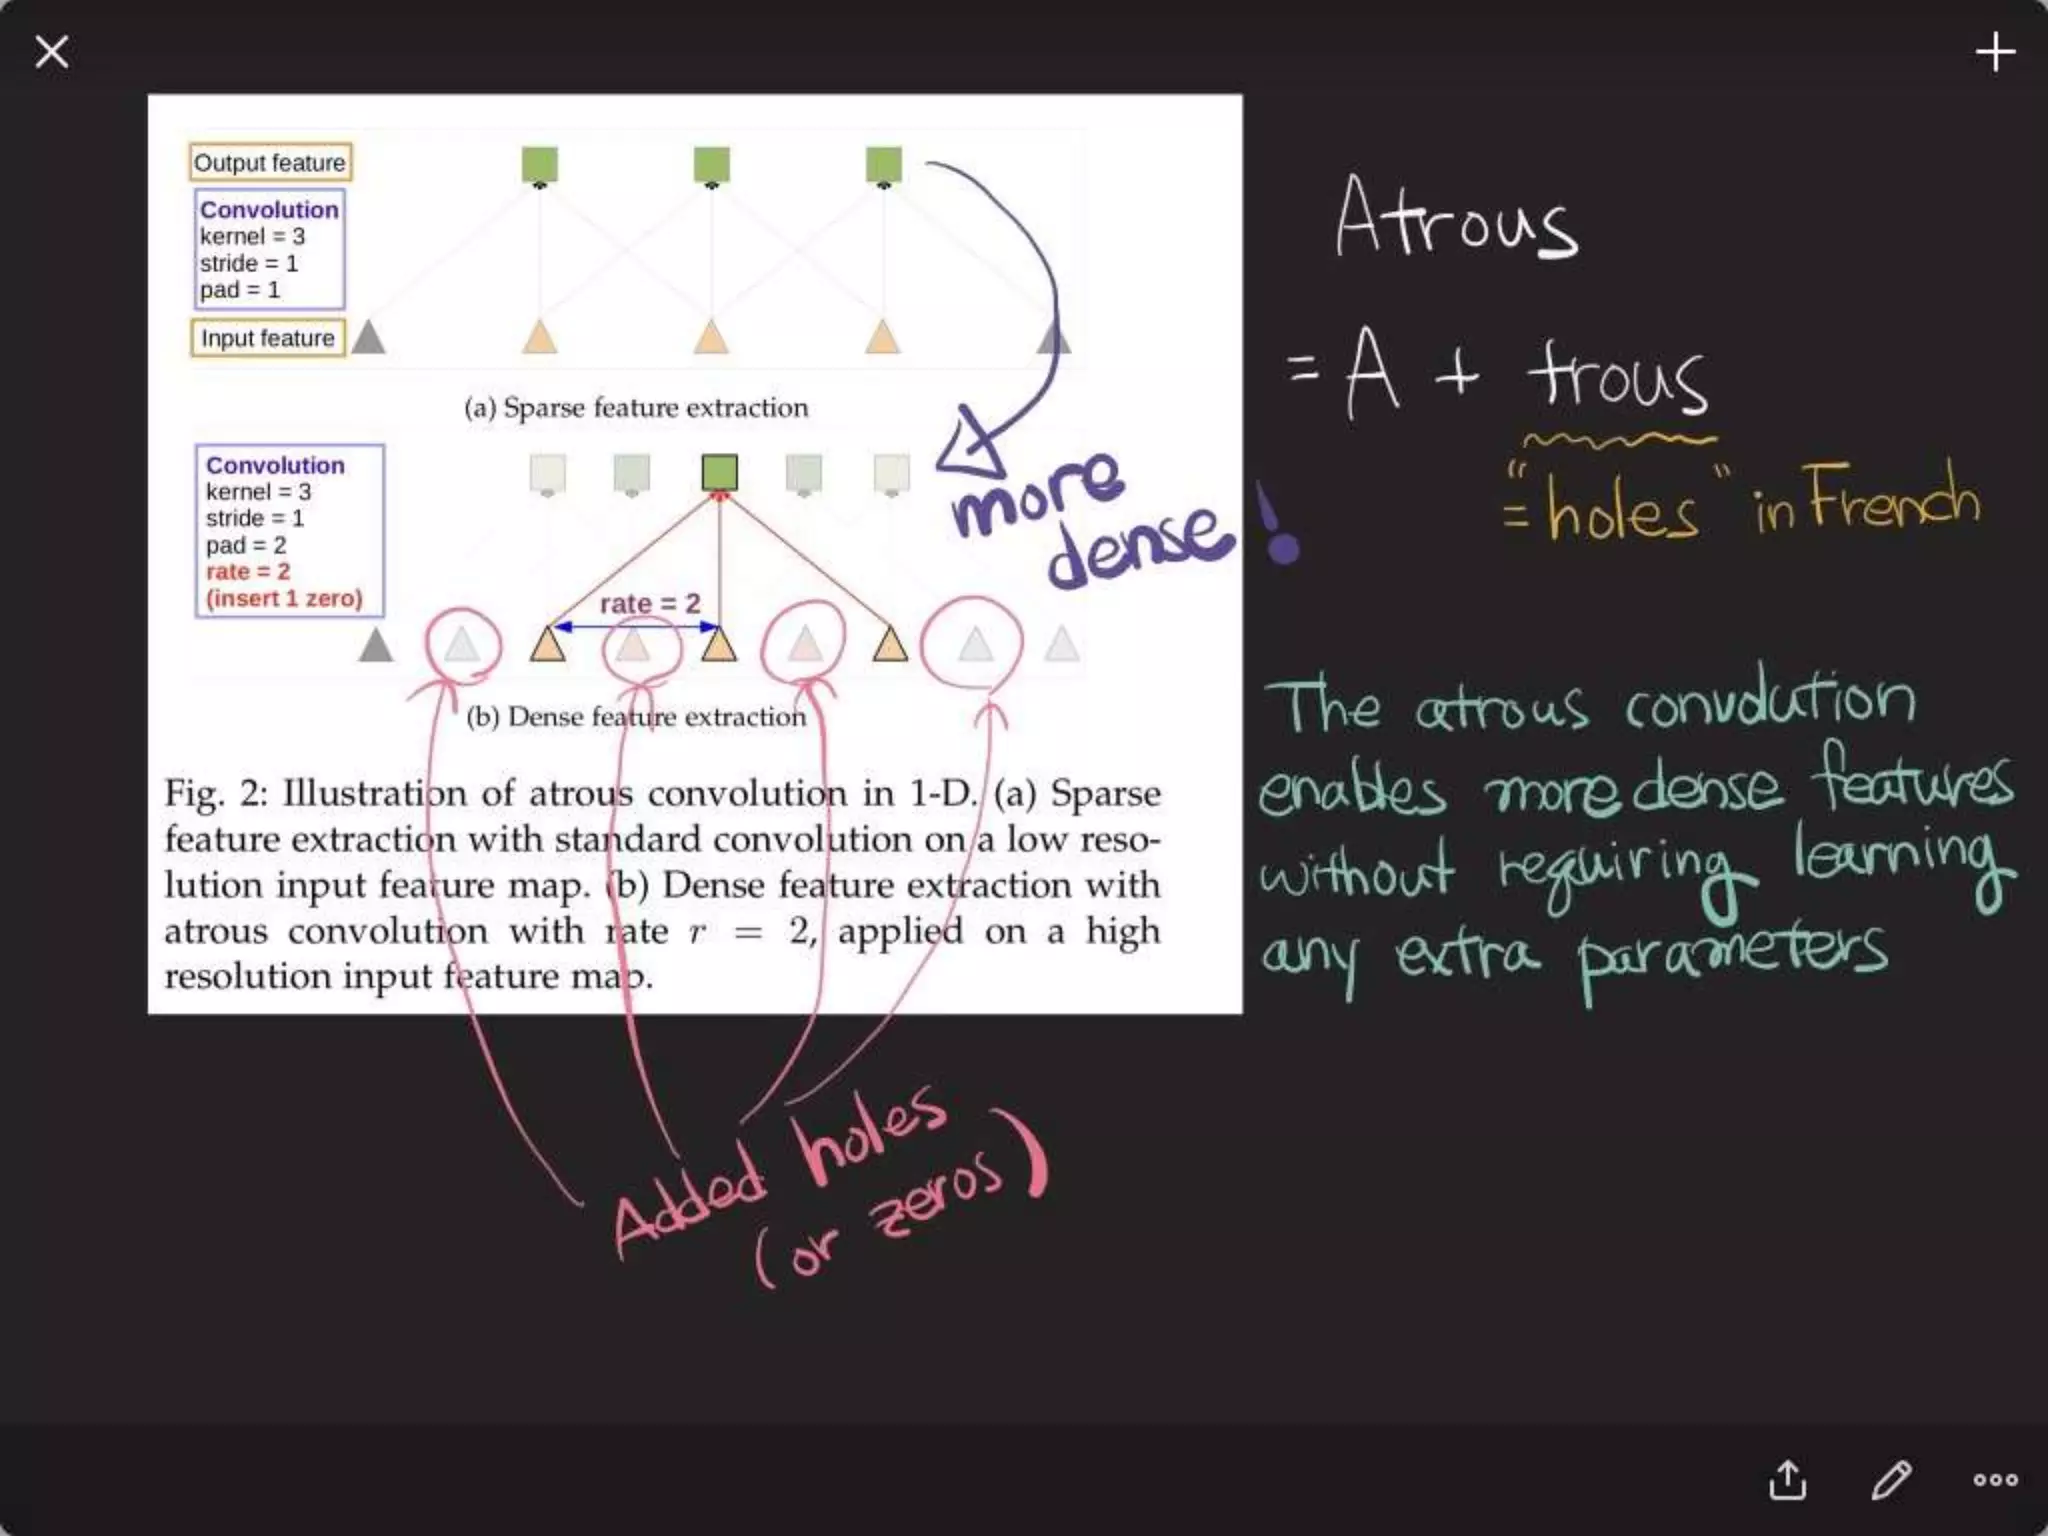 Output feature
Convolution
kernel = 3
stride = 1
pad = 1
Input feature
(a) Sparse feature extraction
Convolution
kernel = 3
stride = 1
pad = 2
rate = 2
(insert 1 zero)
rate = 2
(b) Dense feature extraction
more
dense!
Fig. 2: Illustration of atrous convolution in 1-D. (a) Sparse
feature extraction with standard convolution on a low reso-
lution input feature map. (b) Dense feature extraction with
atrous convolution with rate r = 2, applied on a high
resolution input feature map.
Added holes
(or zeros)
Atrous
= A + trous
= "holes" in French
The atrous convolution
enables more dense features
without requiring learning
any extra parameters